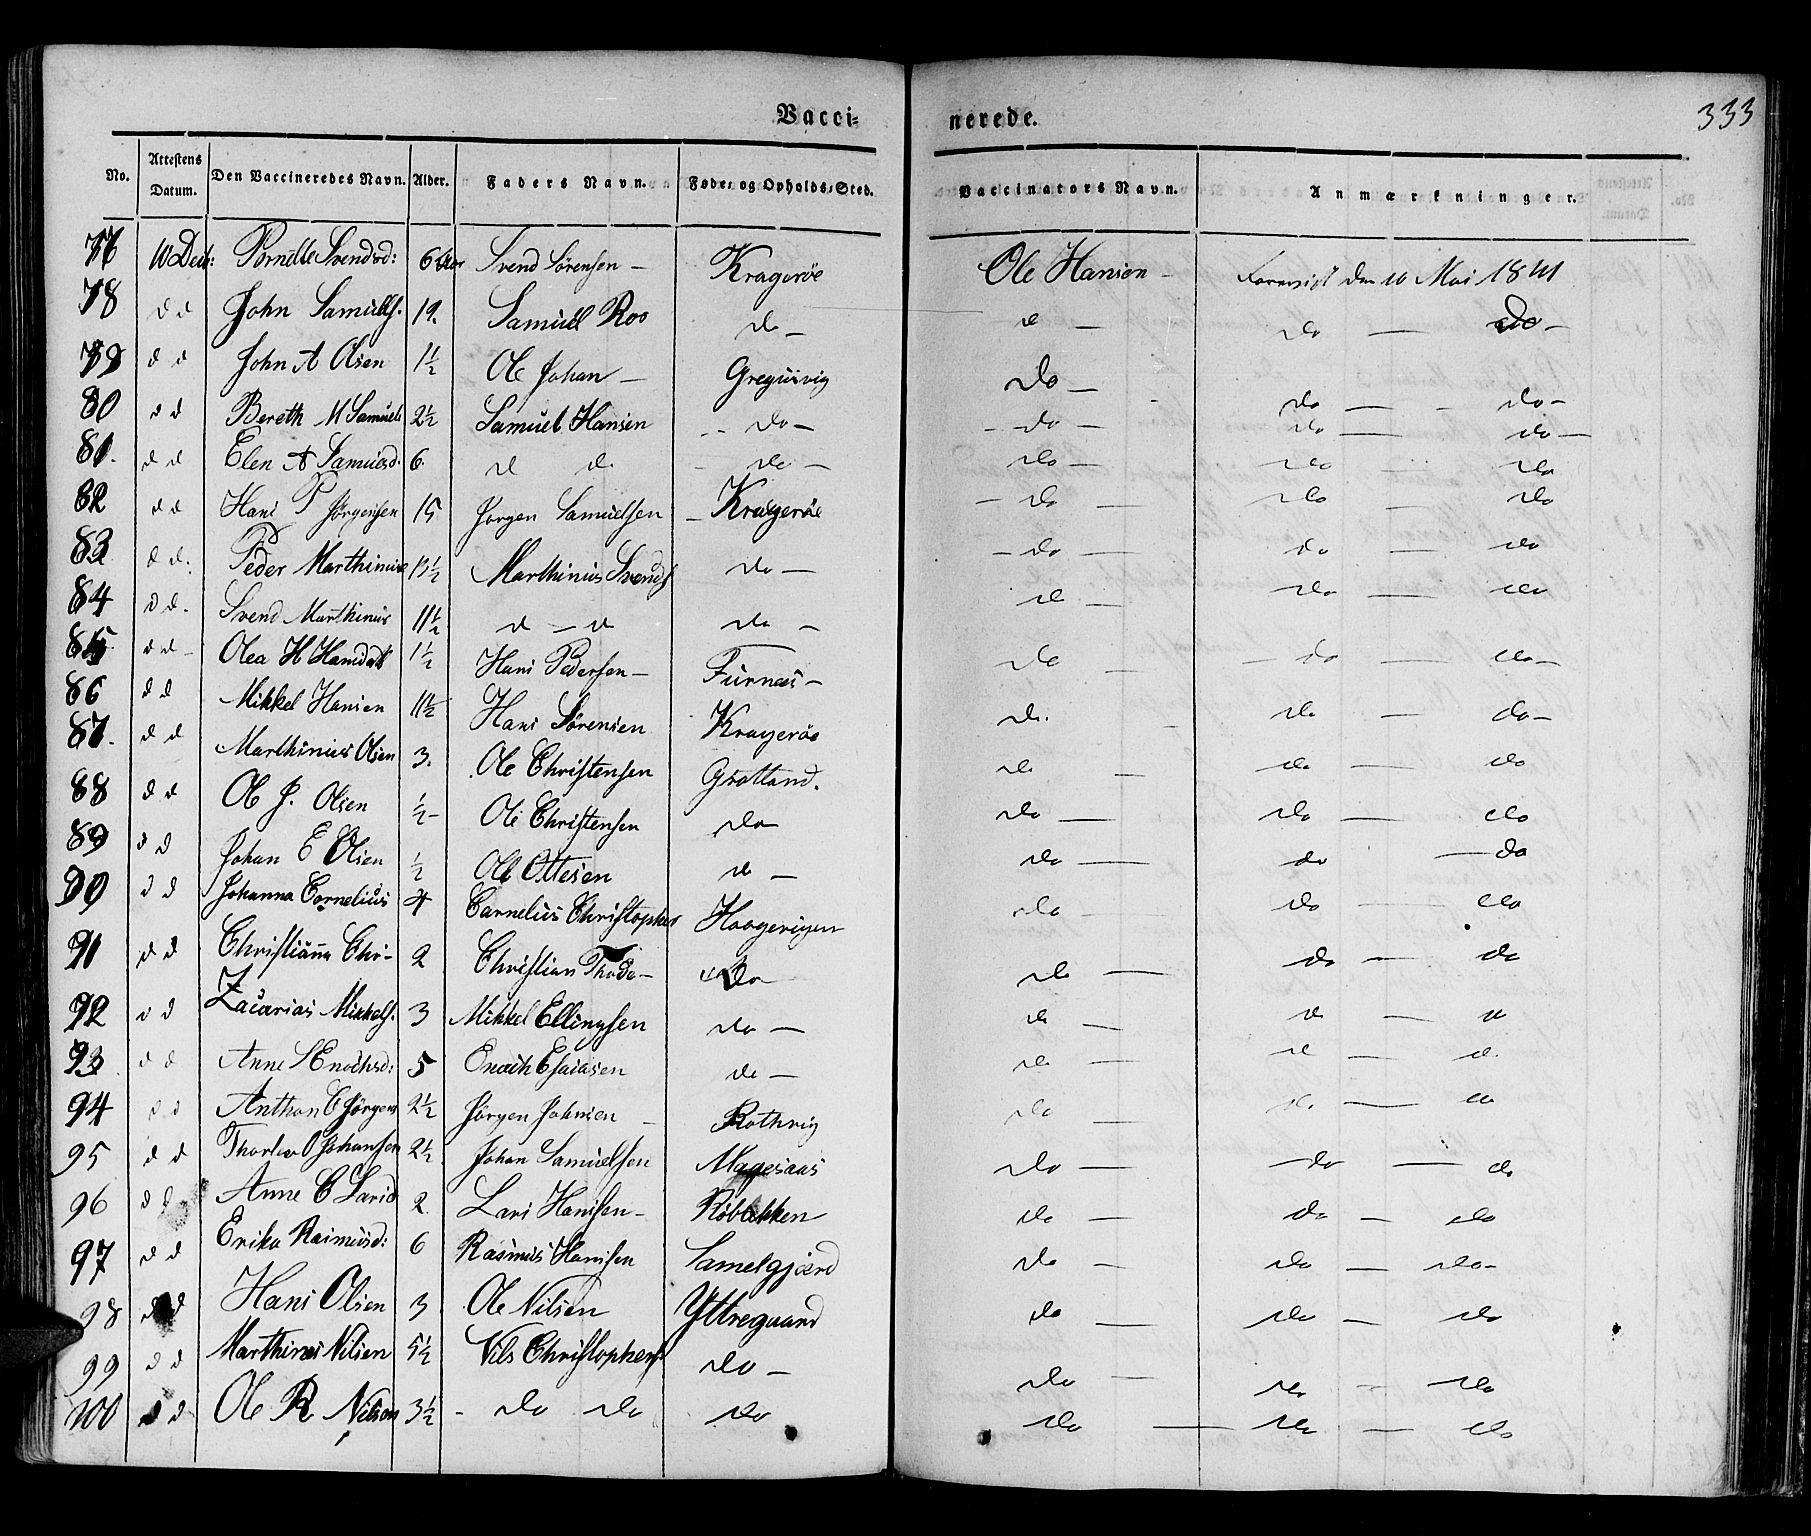 Vacci=
nerede.
333
No. Attestens Datum. Den Vaccineredes Navn. Alder. Faders Navn. Føde= og Opholds=Sted. Vaccinators Navn. Anmærkninger.
77 10 Decbr: Pernelle Svendsd: 6 Aar Svend Sørensen — Kragerøe Ole Hansen — den 10 Mai 1841
78 d d John Samuels. 19. Samuel Roo do — d — do — do —
79 d d John A Olsen 1½ Ole Johan — Gregusvig do —
80 d d Bereth M Samuels 2½ Samuel Hansen do — do — do — do —
81. d d Elen A Samuelsd. 6. d d. do — do — do — do
82 d d Hans P Jørgensen 15 Jørgen Samuelsen Kragerøe — do — do — do
83 d d. Peder Marthinus 13½ Marthinus Svends do — — do — do — do
84 d d. Svend Marthinus 11½ d — d do — d — do — do
85 d d — Olea H Hansdat 1½ Hans Pedersen — Furnæs — do — do — do —
86 d d Mikkel Hansen 11½ Hans Sørensen Kragerøe do. do — do —
87. d d Marthinus Olsen 3. Ole Christensen Grøtland. do — do — do
88 d d Ole J. Olsen ½ — Ole Christensen do do — do — do
89 d d Johan E Olsen ½ Ole Ottesen do — do — do — do
90 d d Johanna Cornelius 4 Cornelius Christopher do — do — do
91 d d Christianna Chri- 2 Christian Thode — do do — do — do
92 d d Zacarias Mikkels. 3 Mikkel Ellingsen do — do — d — d
93 d d Anne S Enochsd: 5 Enoch Esaiasen do — do — d — d.
94 d d Anthon C Jørgens 2½ Jørgen Johnsen — Rothvig do — do. — do
95 d d Thorlev O Johansen 2½ Johan Samuelsen Magesaas do — do — do
96 d d Anne C Larsd 2. Lars Hansen — Røbækken do — do — do
97 d d Erika Rasmusd: 6 Rasmus Hansen Samelgjærd do — do — do —
98 d d Hans Olsen 3 Ole Nilsen Yttregaard do — do — do
99 d d Marthines Nilsen 5½ Nils Christophers do — do — do — do
100 d d Ole R Nilsen 3½ — do do do do — do — do